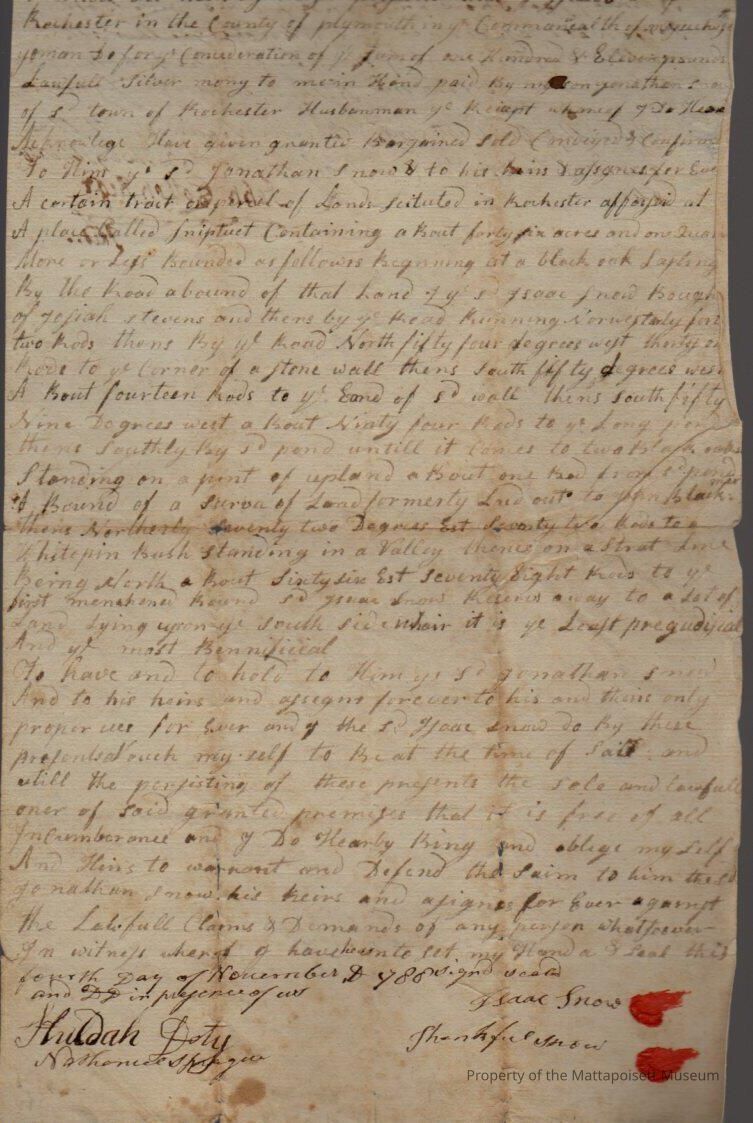 Rochester in the County of plymouth in ye Commanwealth of
yoman Do for ye Concideration of ye Sum of one Hundred &
Lawfull Silver mony to me in Hand paid By my son Jonathan Snow
of sd town of Rochester Husbanman ye Receipt whereof I Do Hear
Have given granted Bargained Sold Convayed & Confirm
To Him ye sd Jonathan Snow & to his heirs & assignes for Ever
A certain tract or parsel of Lands scituted in Rochester at
A place Called Sniptuct Containing a Bout forty six acres and one
More or Less Bounded as follows Beginning at a black oak
By the Road a bound of that Land I ye sd Isaac Snow Bough
of Josiah stevens and thens by ye Road Running Norwestarly
two Rods thens By ye Road North fifty four degrees west
Rods to ye Corner of a stone wall thens South fifty degrees west
A Bout fourteen Rods to ye Eand of sd wall thens South fifty
Nine Degrees west a Bout Ninty four Rods to ye Long pond
thens Southly By sd pond untill it Comes to two Black oaks
Standing on a pint of upland a Bout one Rod from sd pond
A Bound of a of Land formerly Laid out to John Black
thens Northerly Seventy two Degrees Est Seventy two Rods to a
Whitepin Bush Standing in a Valley thens on a Strat Line
Being North a Bout Sixtysix Est Seventy Eight Rods to ye
first menshened Bound sd Isaac Snow Reserves a way to a Lot of
Land Lying upon ye South Side whair it is ye Least pregudijial
And ye most Bennificial
To have and to hold to Him ye sd Jonathan Snow
And to his heirs and assegns forever to his and theirs only
proper use for Ever and I the sd Isaac Snow do By these
presents Vouch my self to Be at the time of Sail and
till the of these presents the Sole and Lawfull
oner of Said granted premises that it is free of all
Incumberance and I Do Hearby Bing and oblege my Self
And Hirs to warrant and Defend the Saim to him the sd
Jonathan Snow his Heirs and asignes for Ever against
the Lawfull Claims & Demands of any person whatsoever
In witness whereof I have heareunto Set my Hand & Seal this
fourth Day of November D 1788 signd seald
and DD in presence of us
Isaac Snow
Huldah Doty
Thankful Snow
Nathaniel Sprague
Property of the Mattapoisett Museum